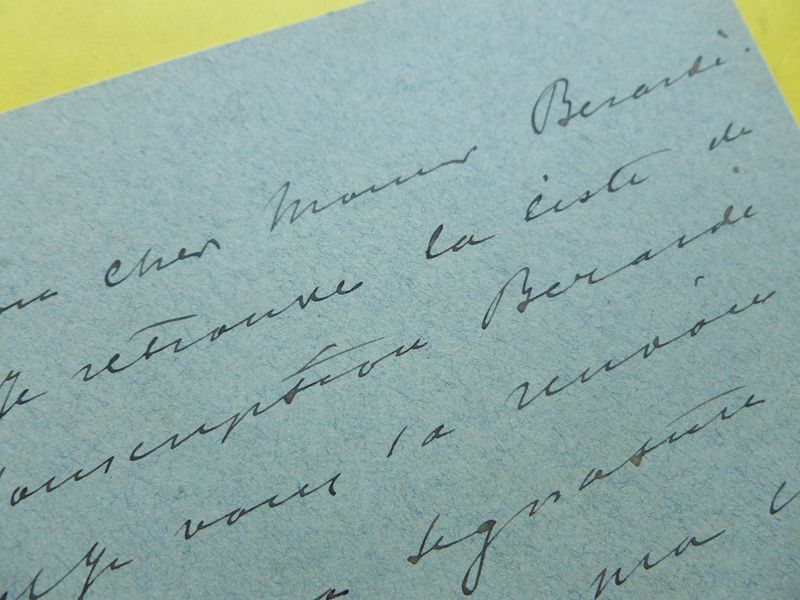 mon cher Monsieur Berardi.
Je retrouve la liste de
souscription Berardi
et je vous la renvoie
signature
ma